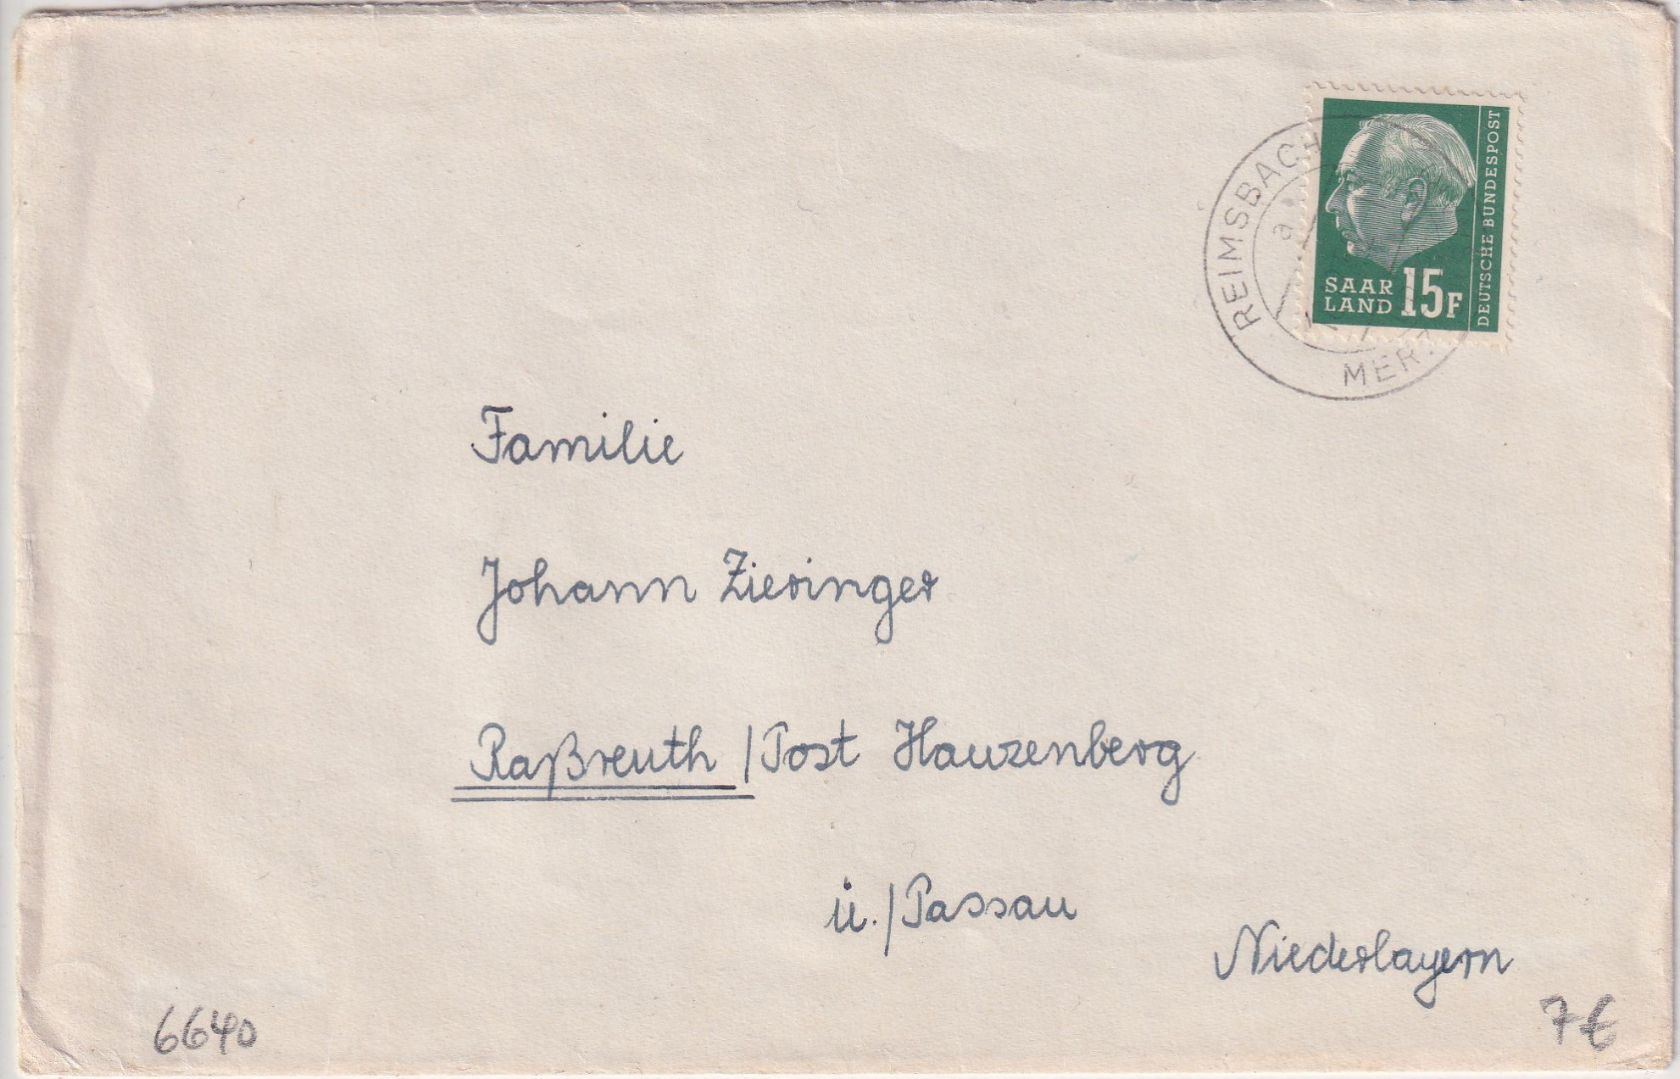 REIMSBACH
a
MERZ
SAAR
LAND 15F
DEUTSCHE BUNDESPOST
Familie
Johann Zieringer
Raßreuth / Post Hauzenberg
ü./Passau
Niederbayern
6640
7€